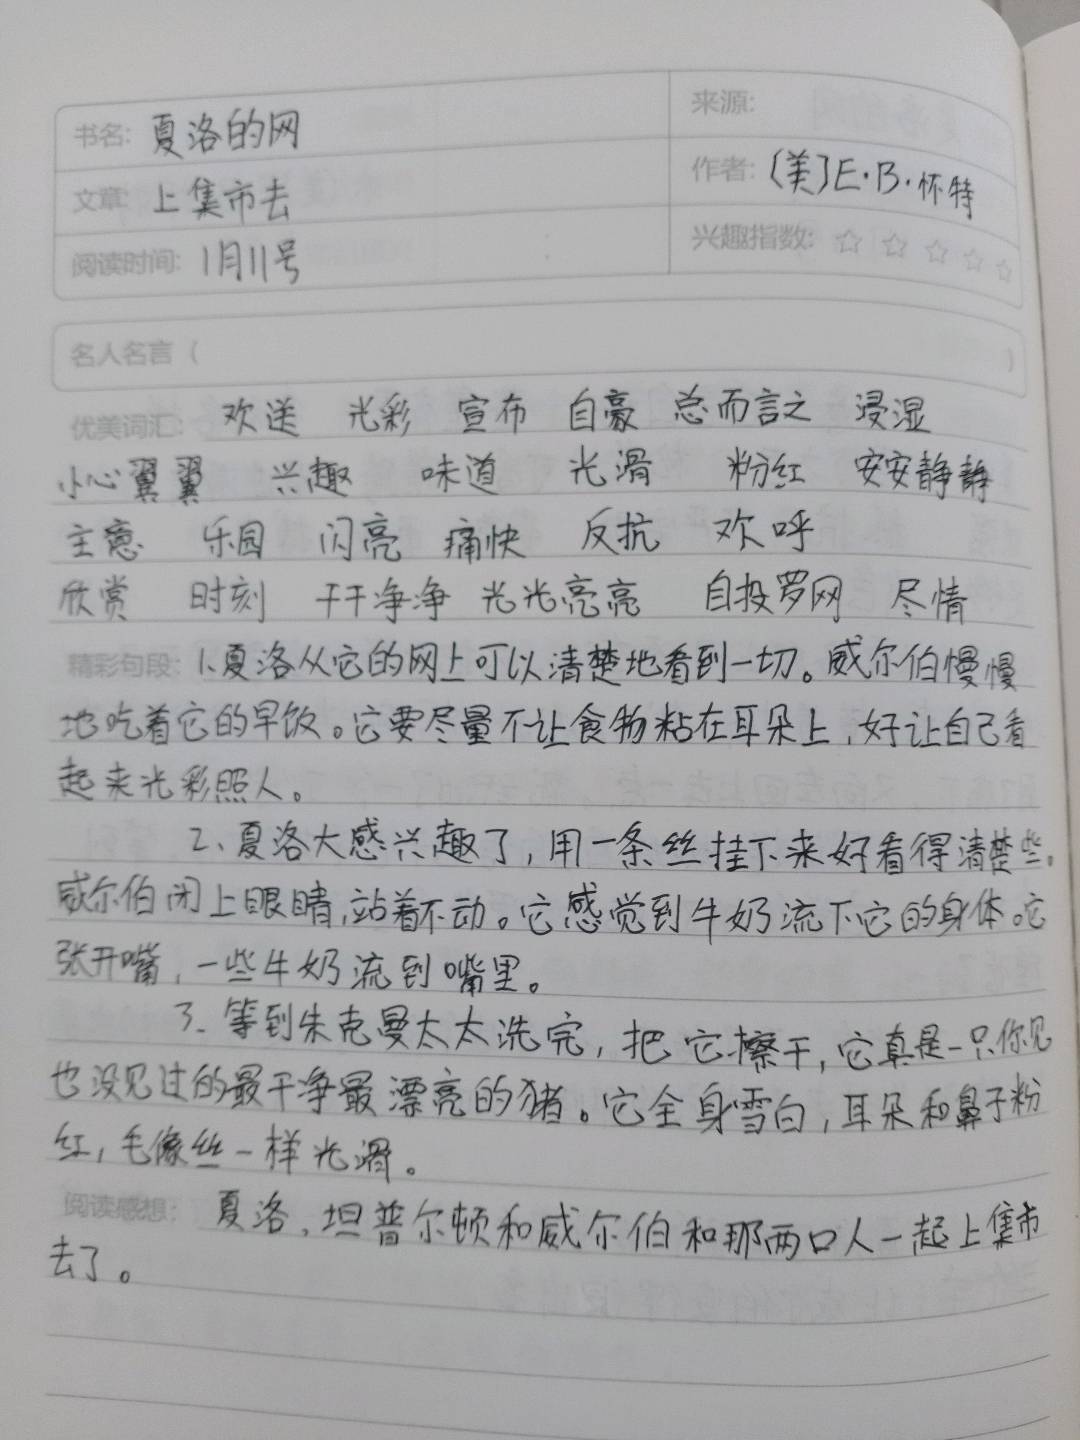 书名: 夏洛的网
来源:
文章: 上集市去
作者: [美]E·B·怀特
阅读时间: 1月11号
兴趣指数: ☆ ☆ ☆ ☆ ☆
名人名言 ( )
优美词汇: 欢送 光彩 宣布 自豪 总而言之 浸湿
小心翼翼 兴趣 味道 光滑 粉红 安安静静
主意 乐园 闪亮 痛快 反抗 欢呼
欣赏 时刻 干干净净 光光亮亮 自投罗网 尽情
精彩句段: 1.夏洛从它的网上可以清楚地看到一切。威尔伯慢慢
地吃着它的早饭。它要尽量不让食物粘在耳朵上,好让自己看
起来光彩照人。
2、夏洛大感兴趣了,用一条丝挂下来好看得清楚些。
威尔伯闭上眼睛,站着不动。它感觉到牛奶流下它的身体。它
张开嘴,一些牛奶流到嘴里。
3、等到朱克曼太太洗完,把它擦干,它真是一只你见
也没见过的最干净最漂亮的猪。它全身雪白,耳朵和鼻子粉
红,毛像丝一样光滑。
阅读感想: 夏洛、坦普尔顿和威尔伯和那两口人一起上集市
去了。